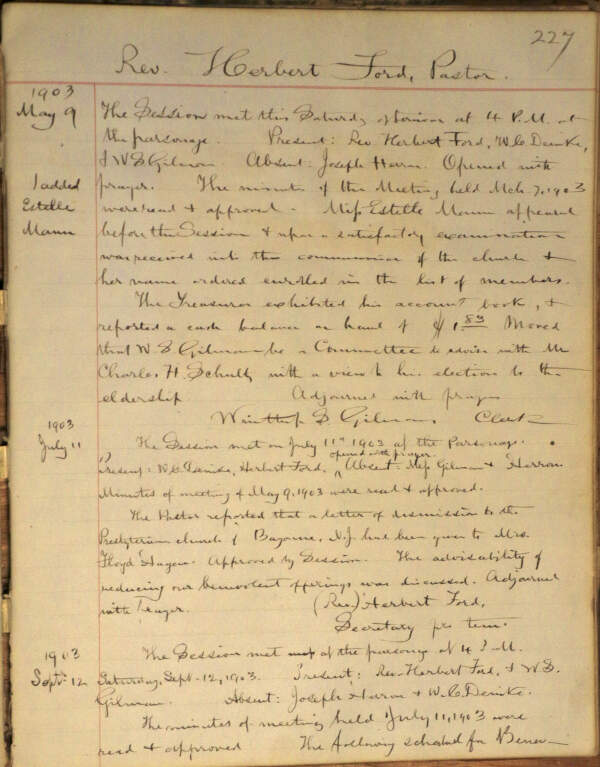 227
Rev. Herbert Ford, Pastor.
1903
May 9
The Session met this Saturday afternoon at 4 P.M. at
the parsonage. Present: Rev. Herbert Ford, W.C. Denike,
& W S Gilman Absent: Joseph Harron. Opened with
1 added
prayer. The minutes of the Meeting held Mch. 7, 1903
Estelle
were read & approved. Miss Estelle Mann appeared
Mann
before the Session & upon a satisfactory examination
was received into the communion of the church &
her name ordered enrolled in the list of members.
The Treasurer exhibited his account book, &
reported a cash balance on hand of $1.83 Moved
that W. S Gilman be a Committee to advise with Mr
Charles H. Schultz with a view to his election to the
eldership Adjourned with prayer
Winthrop S Gilman, Clerk
1903
July 11
The Session met on July 11th 1903 at the Parsonage.
opened with prayer.
Present: W.C. Denike, Herbert Ford. Absent Messrs Gilman & Harron
Minutes of meeting of May 9, 1903 were read & approved.
The Pastor reported that a letter of dismission to the
Presbyterian church of Bayonne, N.J. had been given to Mrs.
Floyd Approved by Session. The advisability of
reducing our benevolent offerings was discussed. Adjourned
with Prayer. (Rev.) Herbert Ford,
Secretary pro tem.
1903
Sept. 12
The Session met at the parsonage at 4 P.M.
Saturday, Sept. 12, 1903. Present: Rev. Herbert Ford, & W S.
Gilman. Absent: Joseph Harron & W.C. Denike.
The minutes of meeting held July 11, 1903 were
read & approved The following schedule for Benev-